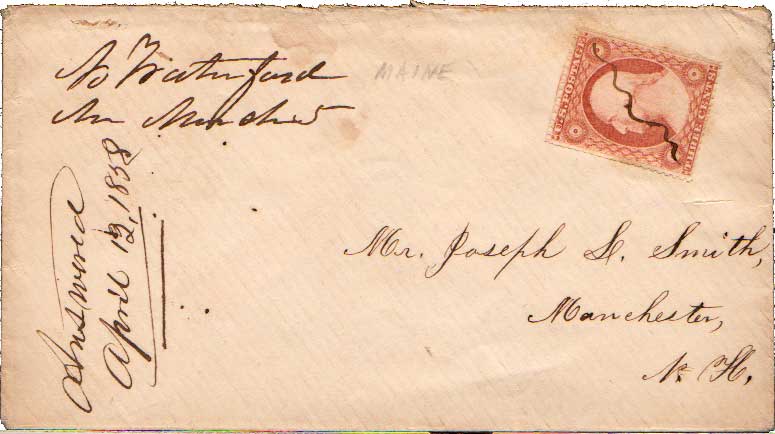 No Waterford
MAINE
Mr. Joseph L. Smith,
Manchester,
N. H.
Answered
April 12, 1858
U.S. POSTAGE
THREE CENTS